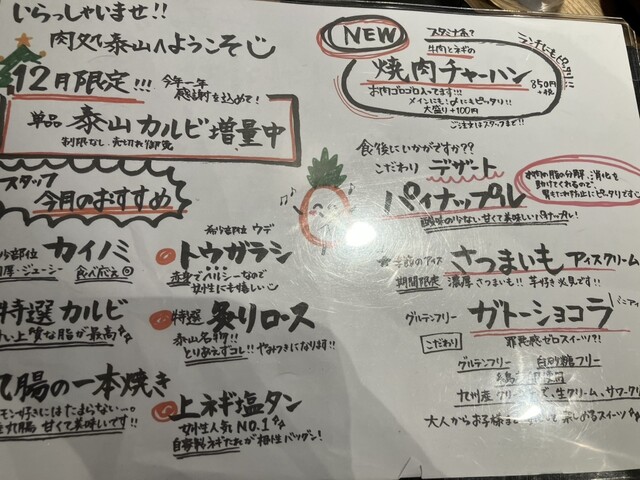 いらっしゃいませ!!
肉処泰山へようこそ
12月限定!!!
今年一年
感謝を込めて!
単品 泰山カルビ増量中
制限なし、売切れ御免
スタッフ
今月のおすすめ
カイノミ
ジューシー
食べごたえ◎
特選カルビ
上質な脂が最高
丸腸の一本焼き
モン好きにはたまらない〜。
丸腸 甘くて美味しいです!!
希少部位 ウデ
トウガラシ
赤身でヘルシーなので
女性にも嬉しい
特選 炙りロース
泰山名物!!
とりあえずコレ!! やみつきになります!!
上ネギ塩タン
女性人気NO.1
自家製ネギだれが相性バツグン!
NEW
スタミナ系?
牛肉とネギの
焼肉チャーハン
850円
+税
お肉ゴロゴロ入ってます!!!
メインにも!〆にもピッタリ!!
大盛り+100円
ご注文はスタッフまで!!
ランチにもピッタリ!!!
食後にいかがですか??
こだわり デザート
パイナップル
酸味の少ない甘くて美味しいパイナップル!
お肉の脂の分解、消化を
助けてくれるので、
胃もたれ防止にピッタリです
季節のアイス
期間限定
さつまいもアイスクリーム
濃厚さつまいも!! 芋好き必見です!!
グルテンフリー
こだわり
ガトーショコラ
罪悪感ゼロスイーツ?!
グルテンフリー 白砂糖フリー
九州産クリームチーズ・生クリーム、サワー
大人からお子様まで楽しめるスイーツ